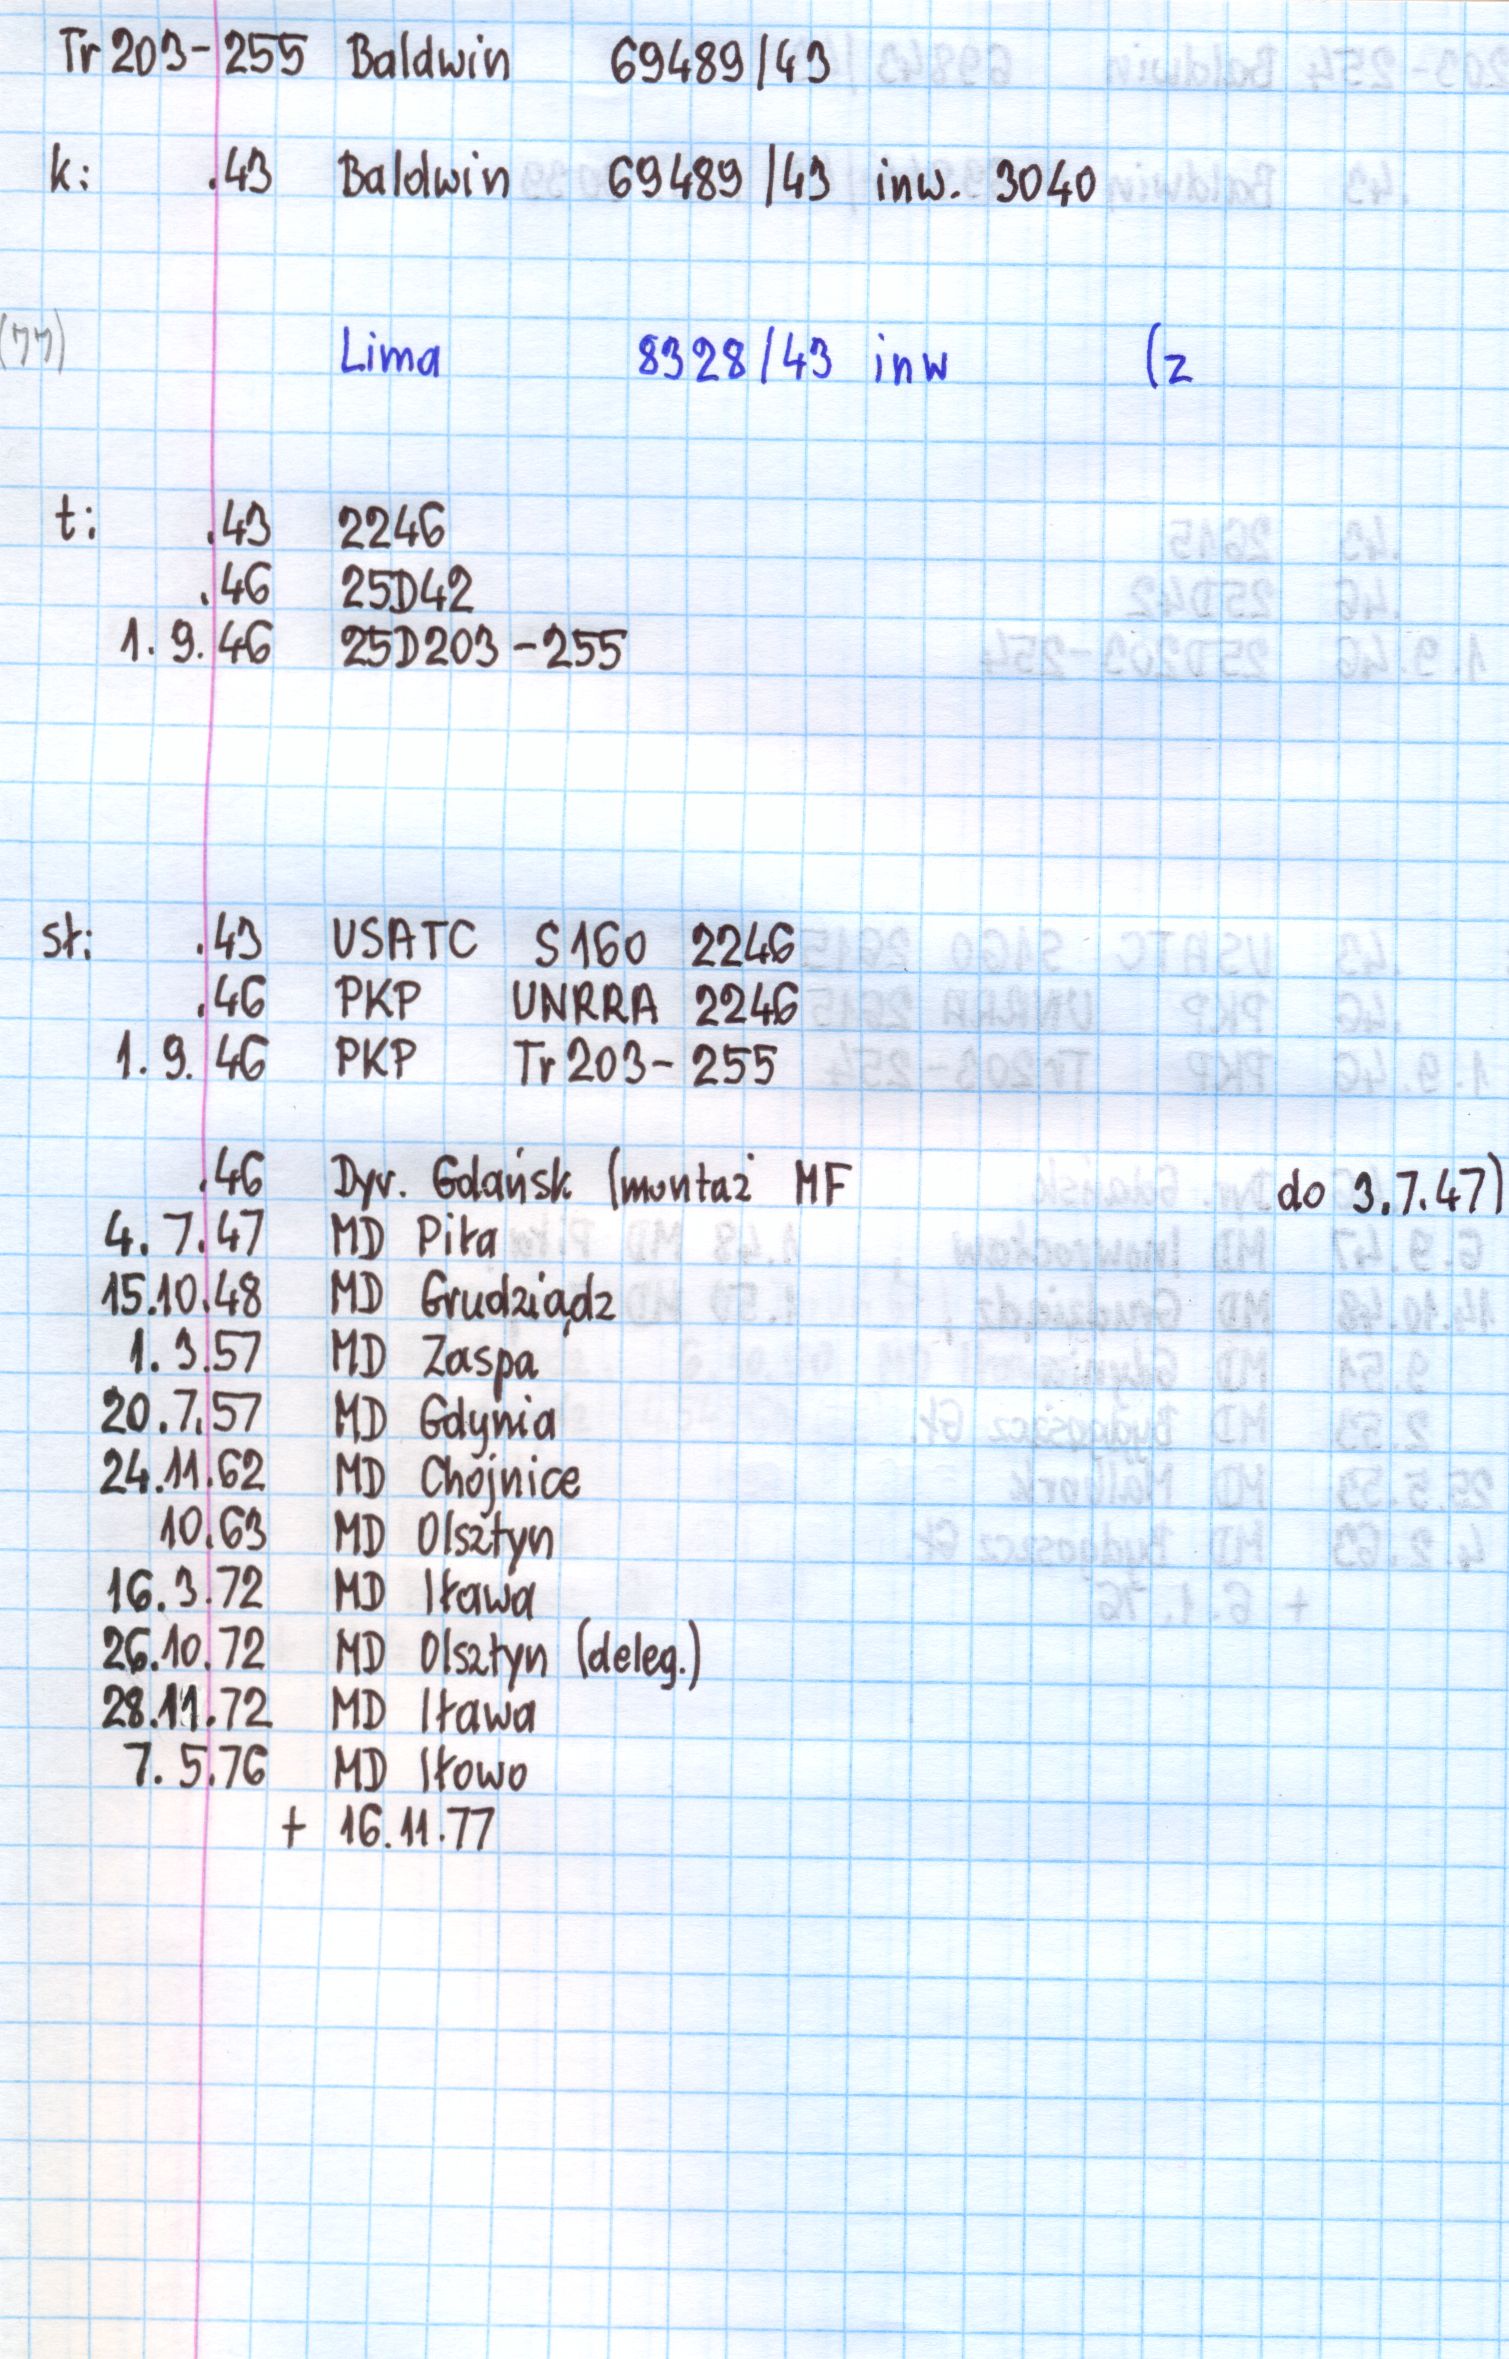 Tr 203-255 Baldwin 69489/43
k: .43 Baldwin 69489/43 inw. 3040
(77) Lima 8328/43 inw (z
t: .43 2246
.46 25D42
1.9.46 25D203-255
st: .43 USATC S160 2246
.46 PKP UNRRA 2246
1.9.46 PKP Tr 203-255
.46 Dyr. Gdańsk (montaż MF do 3.7.47)
4.7.47 MD Piła
15.10.48 MD Grudziądz
1.3.57 MD Zaspa
20.7.57 MD Gdynia
24.11.62 MD Chojnice
10.63 MD Olsztyn
16.3.72 MD Iława
26.10.72 MD Olsztyn (deleg.)
28.11.72 MD Iława
7.5.76 MD Iłowo
+ 16.11.77